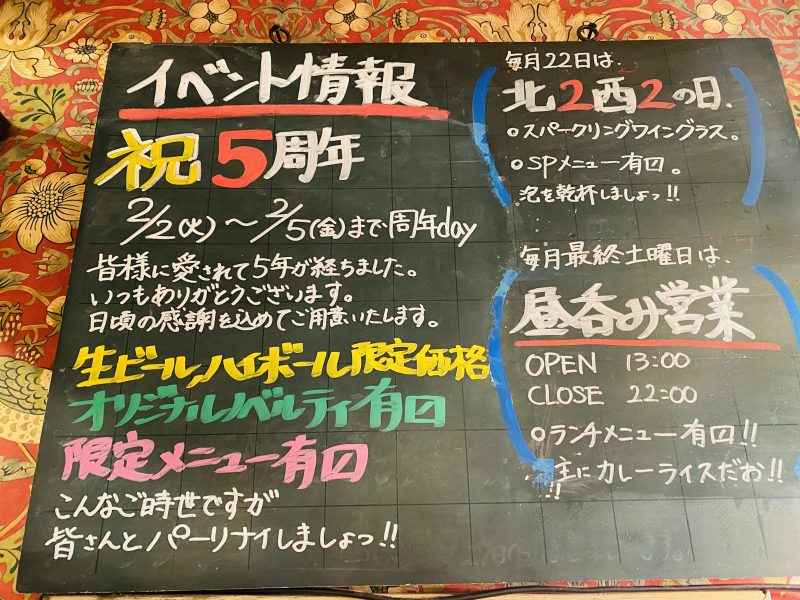 イベント情報
祝5周年
2/2(火)〜2/5(金)まで周年day
皆様に愛されて5年が経ちました。
いつもありがとうございます。
日頃の感謝を込めてご用意いたします。
生ビール,ハイボール限定価格
オリジナルノベルティ有口
限定メニュー有口
こんなご時世ですが
皆さんとパーリナイしましょっ!!
毎月22日は、
北2西2の日、
○スパークリングワイングラス。
○SPメニュー有口。
泡を乾杯しましょっ!!
毎月最終土曜日は、
昼呑み営業
OPEN 13:00
CLOSE 22:00
○ランチメニュー有口!!
主にカレーライスだお!!